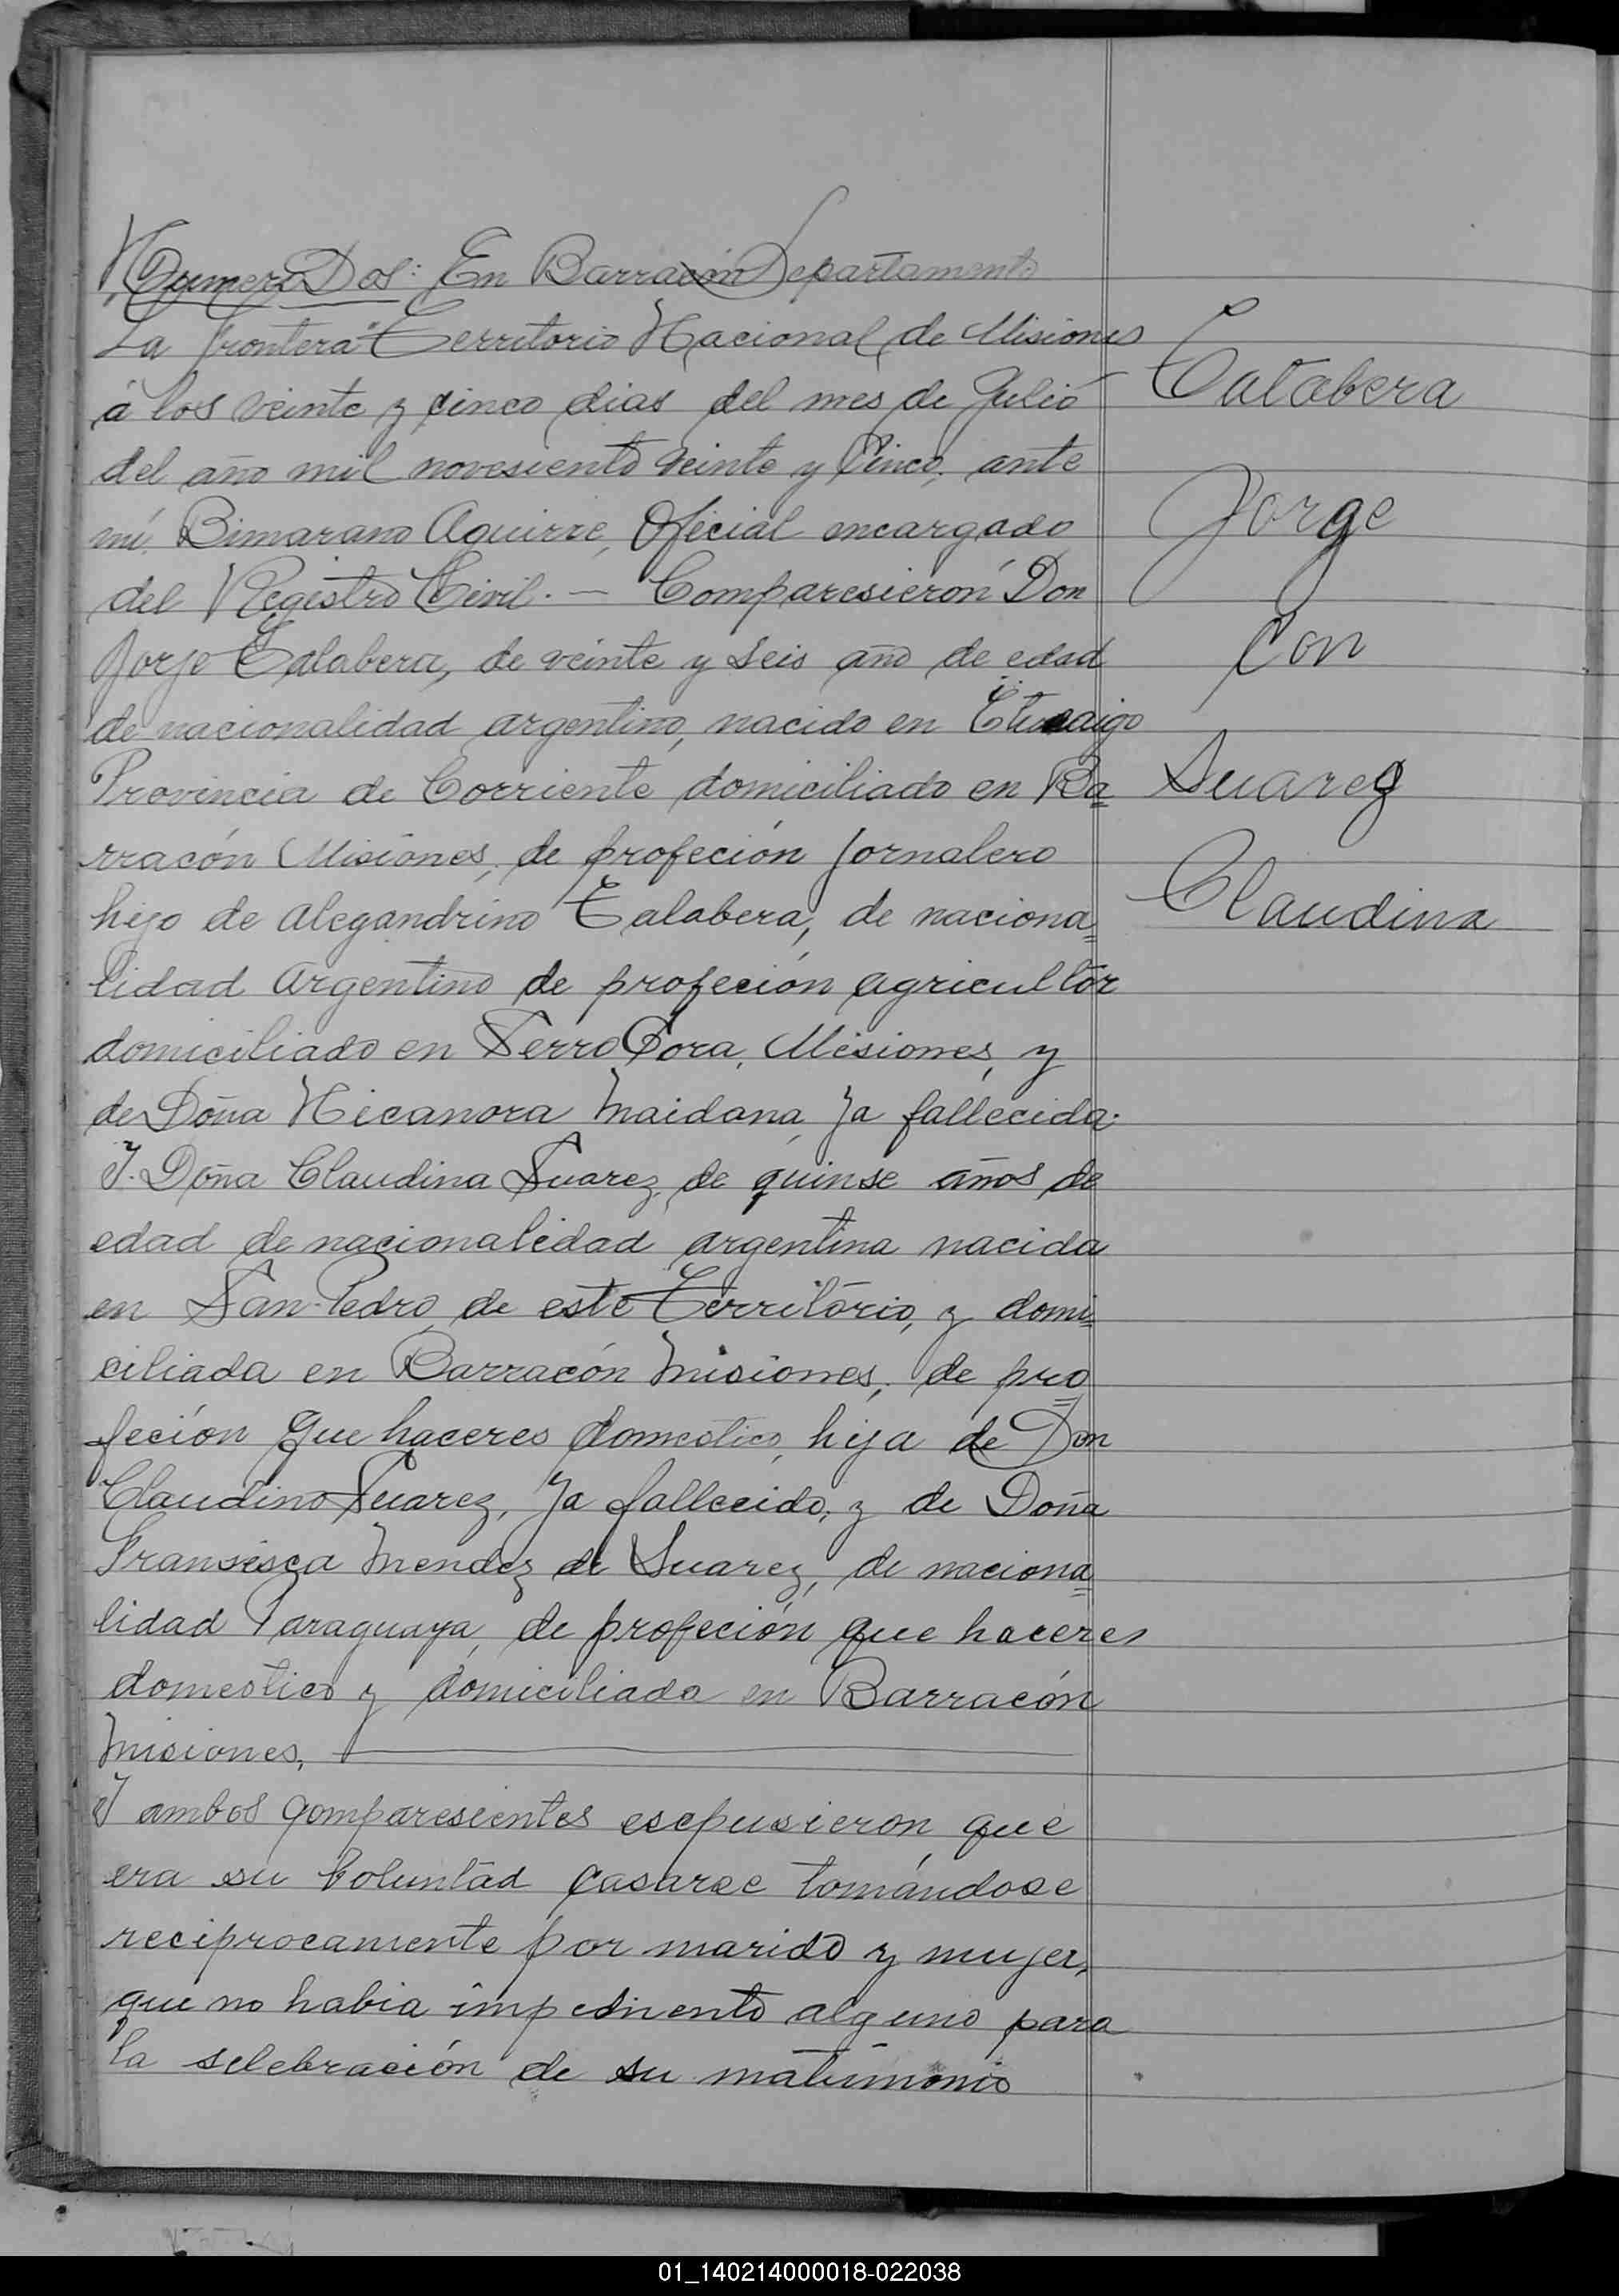 Numero Dos: En Barracón Departamento
La frontera" Territorio Nacional de Misiones
á los veinte y cinco dias del mes de Julio
del año mil novesiento veinte y Cinco, ante
mí Bimarano Aguirre, Oficial encargado
del Registro Civil. — Comparesieron Don
Jorje Talabera, de veinte y seis año de edad
de nacionalidad argentino, nacido en Ituzaigo
Provincia de Corriente domiciliado en Ba=
rracón Misiones, de profeción Jornalero
hijo de Alegandrino Talabera, de naciona=
lidad Argentino de profeción agricultor
domiciliado en Serro Cora, Misiones, y
de Doña Nicanora Maidana Ja fallecida.
I. Doña Claudina Suarez de quinse años de
edad de nacionalidad argentina nacida
en San Pedro de este Territorio, y domi=
ciliada en Barracón Misiones, de pro=
feción que haceres domestico, hija de Don
Claudino Suarez, Ja fallecido, y de Doña
Fransisca Mendez de Suarez, de naciona=
lidad Paraguaya, de profeción que haceres
domestico y domiciliada en Barracón
Misiones,
I ambos comparesientes escpusieron que
era su Voluntad casarse tomándose
reciprocamente por marido y mujer,
que no habia impedimento alguno para
la selebración de su matrimonio
Talabera
Jorge
Con
Suarez
Claudina
01_140214000018-022038